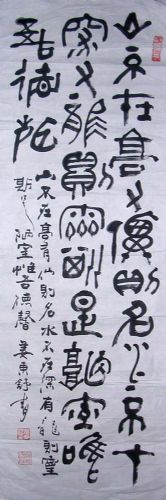 山不在高有仙則名水不在
深有龍則靈斯是陋室惟
吾德馨
山不在高有仙則名水不在深有龍則靈
斯是陋室惟吾德馨 婁東舒